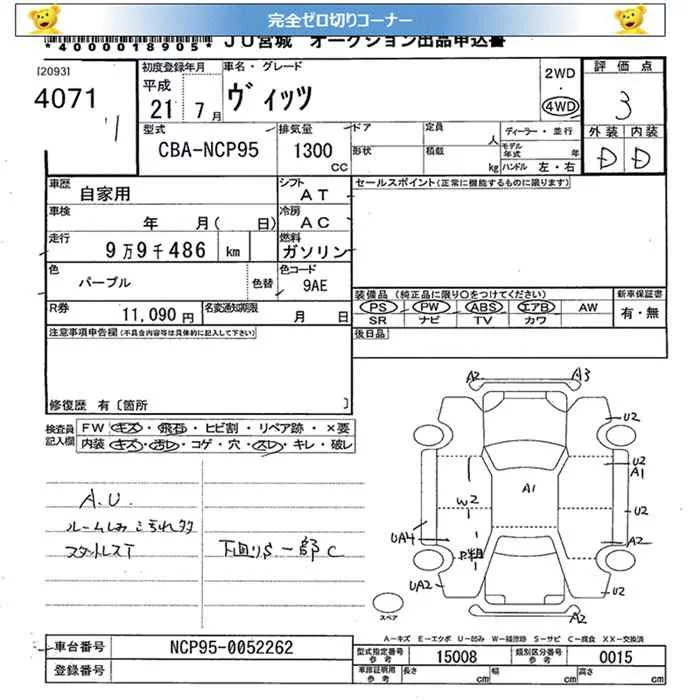 完全ゼロ切りコーナー
*4000018905* JU宮城 オークション出品申込書
[2093]
4071
初度登録年月
平成
21 7月
車名・グレード
ヴィッツ
2WD
・
4WD
評価点
3
外装 内装
D D
型式
CBA-NCP95
排気量
1300
CC
ドア
形状
定員
人
積載
kg
ディーラー・並行
モデル
年式
年
ハンドル 左・右
車歴
自家用
シフト
AT
セールスポイント(正常に機能するものに限ります)
車検
年 月( 日)
冷房
AC
走行
9万9千486 km
燃料
ガソリン
色
パープル
色替
色コード
9AE
装備品(純正品に限り○をつけてください)
PS PW ABS エアB AW
SR ナビ TV カワ
新車保証書
有・無
R券
11,090円
名変通知期限
月 日
後日品
注意事項申告欄(不具合内容等は具体的に記入して下さい)
修復歴 有〔箇所 〕
検査員
記入欄
FW キズ・飛石・ヒビ割・リペア跡・×要
内装 キズ・汚レ・コゲ・穴・スレ・キレ・破レ
A.U.
ルームしみこちれ多
スタットレスT
下回りS一部C
A2 A3
U2
U2
A1
A1
W2
U2
UA4
A2
P粗
UA2
U2
A2
スペア
A-キズ E-エクボ U-凹み W-補修跡 S-サビ C-腐食 XX-交換済
車台番号
NCP95-0052262
登録番号
型式指定番号
参考
15008
類別区分番号
参考
0015
車庫証明用
参考
長さ cm
幅 cm
高さ cm